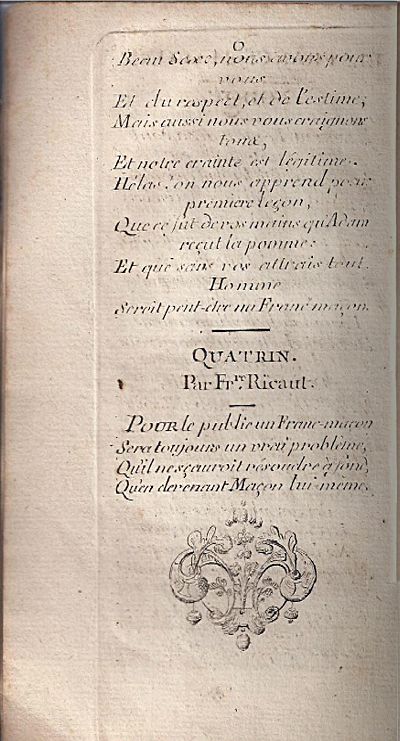 6
Beau Sexe, nous avons pour
vous
Et du respect, et de l'estime;
Mais aussi nous vous craignons
tous,
Et notre crainte est légitime.
Hélas! on nous apprend pour
premiere leçon,
Que ce fut de vos mains qu'Adam
reçut la pomme:
Et que sans vos attraits tout
Homme
Seroit peut-être né Franc maçon.
QUATRIN.
Par Fr.re Ricaut.
POUR le public un Franc-maçon
Sera toujours un vrai problême,
Qu'il ne sçauroit résoudre à fond,
Qu'en devenant Maçon lui-même.